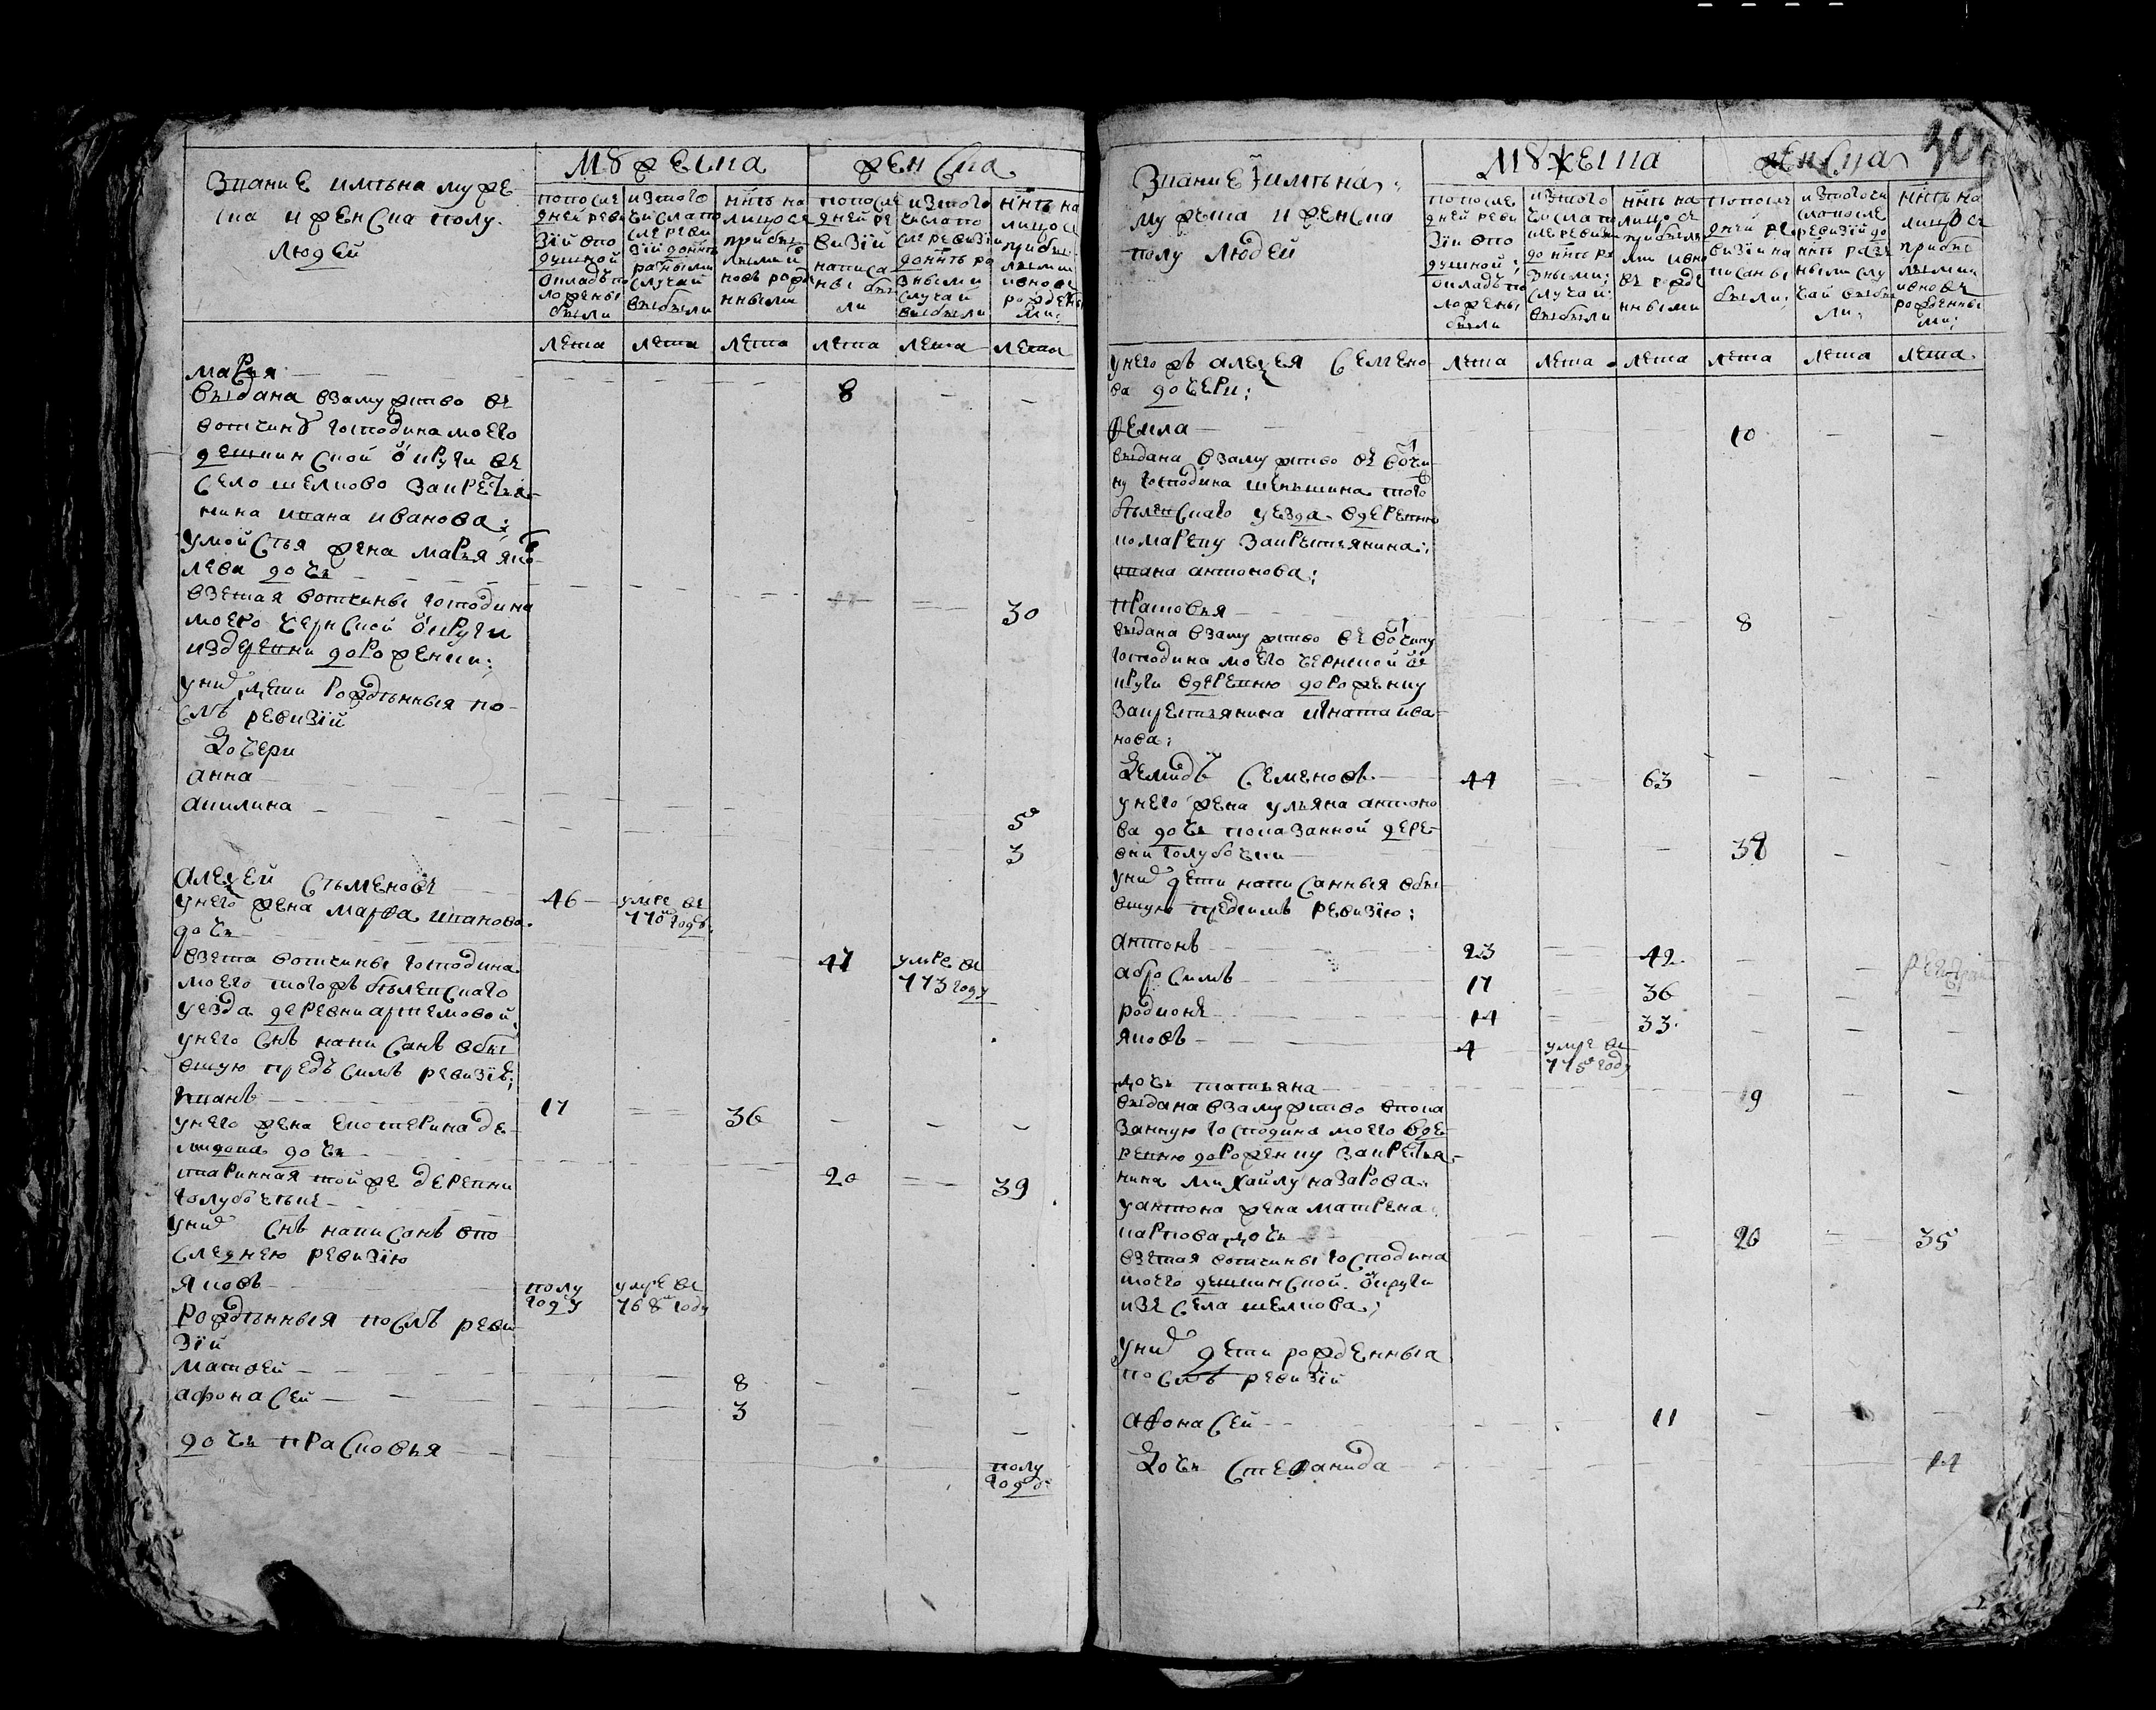 Звание имѣна муже
ска и женска полу
людей
Мужеска
женска
попосле
дней реви
зіи впо
душной
окладъ по
ложены
были
изтого
числа по
сле реви
зіи донынѣ
разными
случаи
выбыли
ннѣ на
лицо съ
прибы
лыми и
новъ рожде
нными
попосле
дней ре
визіи
написа
ны бы
ли
изтого
числа по
сле ревизіи
донынѣ ра
зными
случаи
выбыли
ннѣ на
лицо съ
прибы
лыми
ивновь
рожденны
ми
лета лета лета лета лета лета
марья
выдана взамужство въ 8
вотчину господина моего
село шелково закрестья
нина ивана иванова;
жена марья яко
влева дочь
взетая вотчины господина 30
моего чернской округи
издеревни дороженки;
уних дети рожденныя по
слѣ ревизіи
дочери
анна 5
акилина 3
алексей семеновъ 46 умре въ
770 годѣ
унего жена марфа иванова
дочь 47 умре въ
773 году
взета вотчины господина
моего тогожъ белевскаго
уезда деревни артемовой
унего снъ написанъ вбы
вшую предъ симъ ревизію;
иванъ 17 36
унего жена екатерина де
мидова дочь 20 39
старинная тойже деревни
голубочки
уних снъ написанъ впо
следнею ревизію
яковъ полу
году умре въ
768 году
рожденныя послѣ реви
зіи
матвей 8
афонасей 3
дочь прасковья полу
годѣ
Звание имѣна
мужеска и женска
полу людей
Мужеска
женска
попосле
дней реви
зіи впо
душной
окладъ по
ложены
были
изтого
числа по
сле ревизіи
до ннѣ ра
зными
случаи
выбыли
ннѣ на
лицо съ
прибылы
ми и вно
въ рожде
нными
попосле
дней ре
визіи на
писаны
были
изтого чи
сла после
ревизіи до
ннѣ раз
ными слу
чаи выбы
ли
ннѣ на
лицо съ
прибы
лыми
ивновь
рожденны
ми
лета лета лета лета лета лета
унего жъ алексея семено
ва дочери;
фекла 10
выдана взамужство въ вотчи
ну господина шеншина того
белевскаго уезда вдеревню
комареву закрестьянина
ивана антонова;
прасковья 8
выдана взамужство въ вотчину
господина моего чернской о
круги вдеревню дороженку
закрестьянина игната ива
нова;
демидъ семеновъ 44 63
унего жена ульяна антоно
ва дочь показанной дере
вни голубочки 38
уних дети написанныя вбы
вшую предсимъ ревизію;
антонъ 23 42
абросимъ 17 36
родионъ 14 33
яковъ 4 умре въ
775 году
дочь татьяна 9
выдана взамужство впока
занную господина моего вде
ревню дороженку закрестья
нина михайлу назарова
уантона жена матрена
карпова дочь 20 35
взетая вотчины господина
моего округи
изъ села шелкова;
уних дети рожденныя
послѣ ревизіи
афонасей 11
дочь стефанида 14